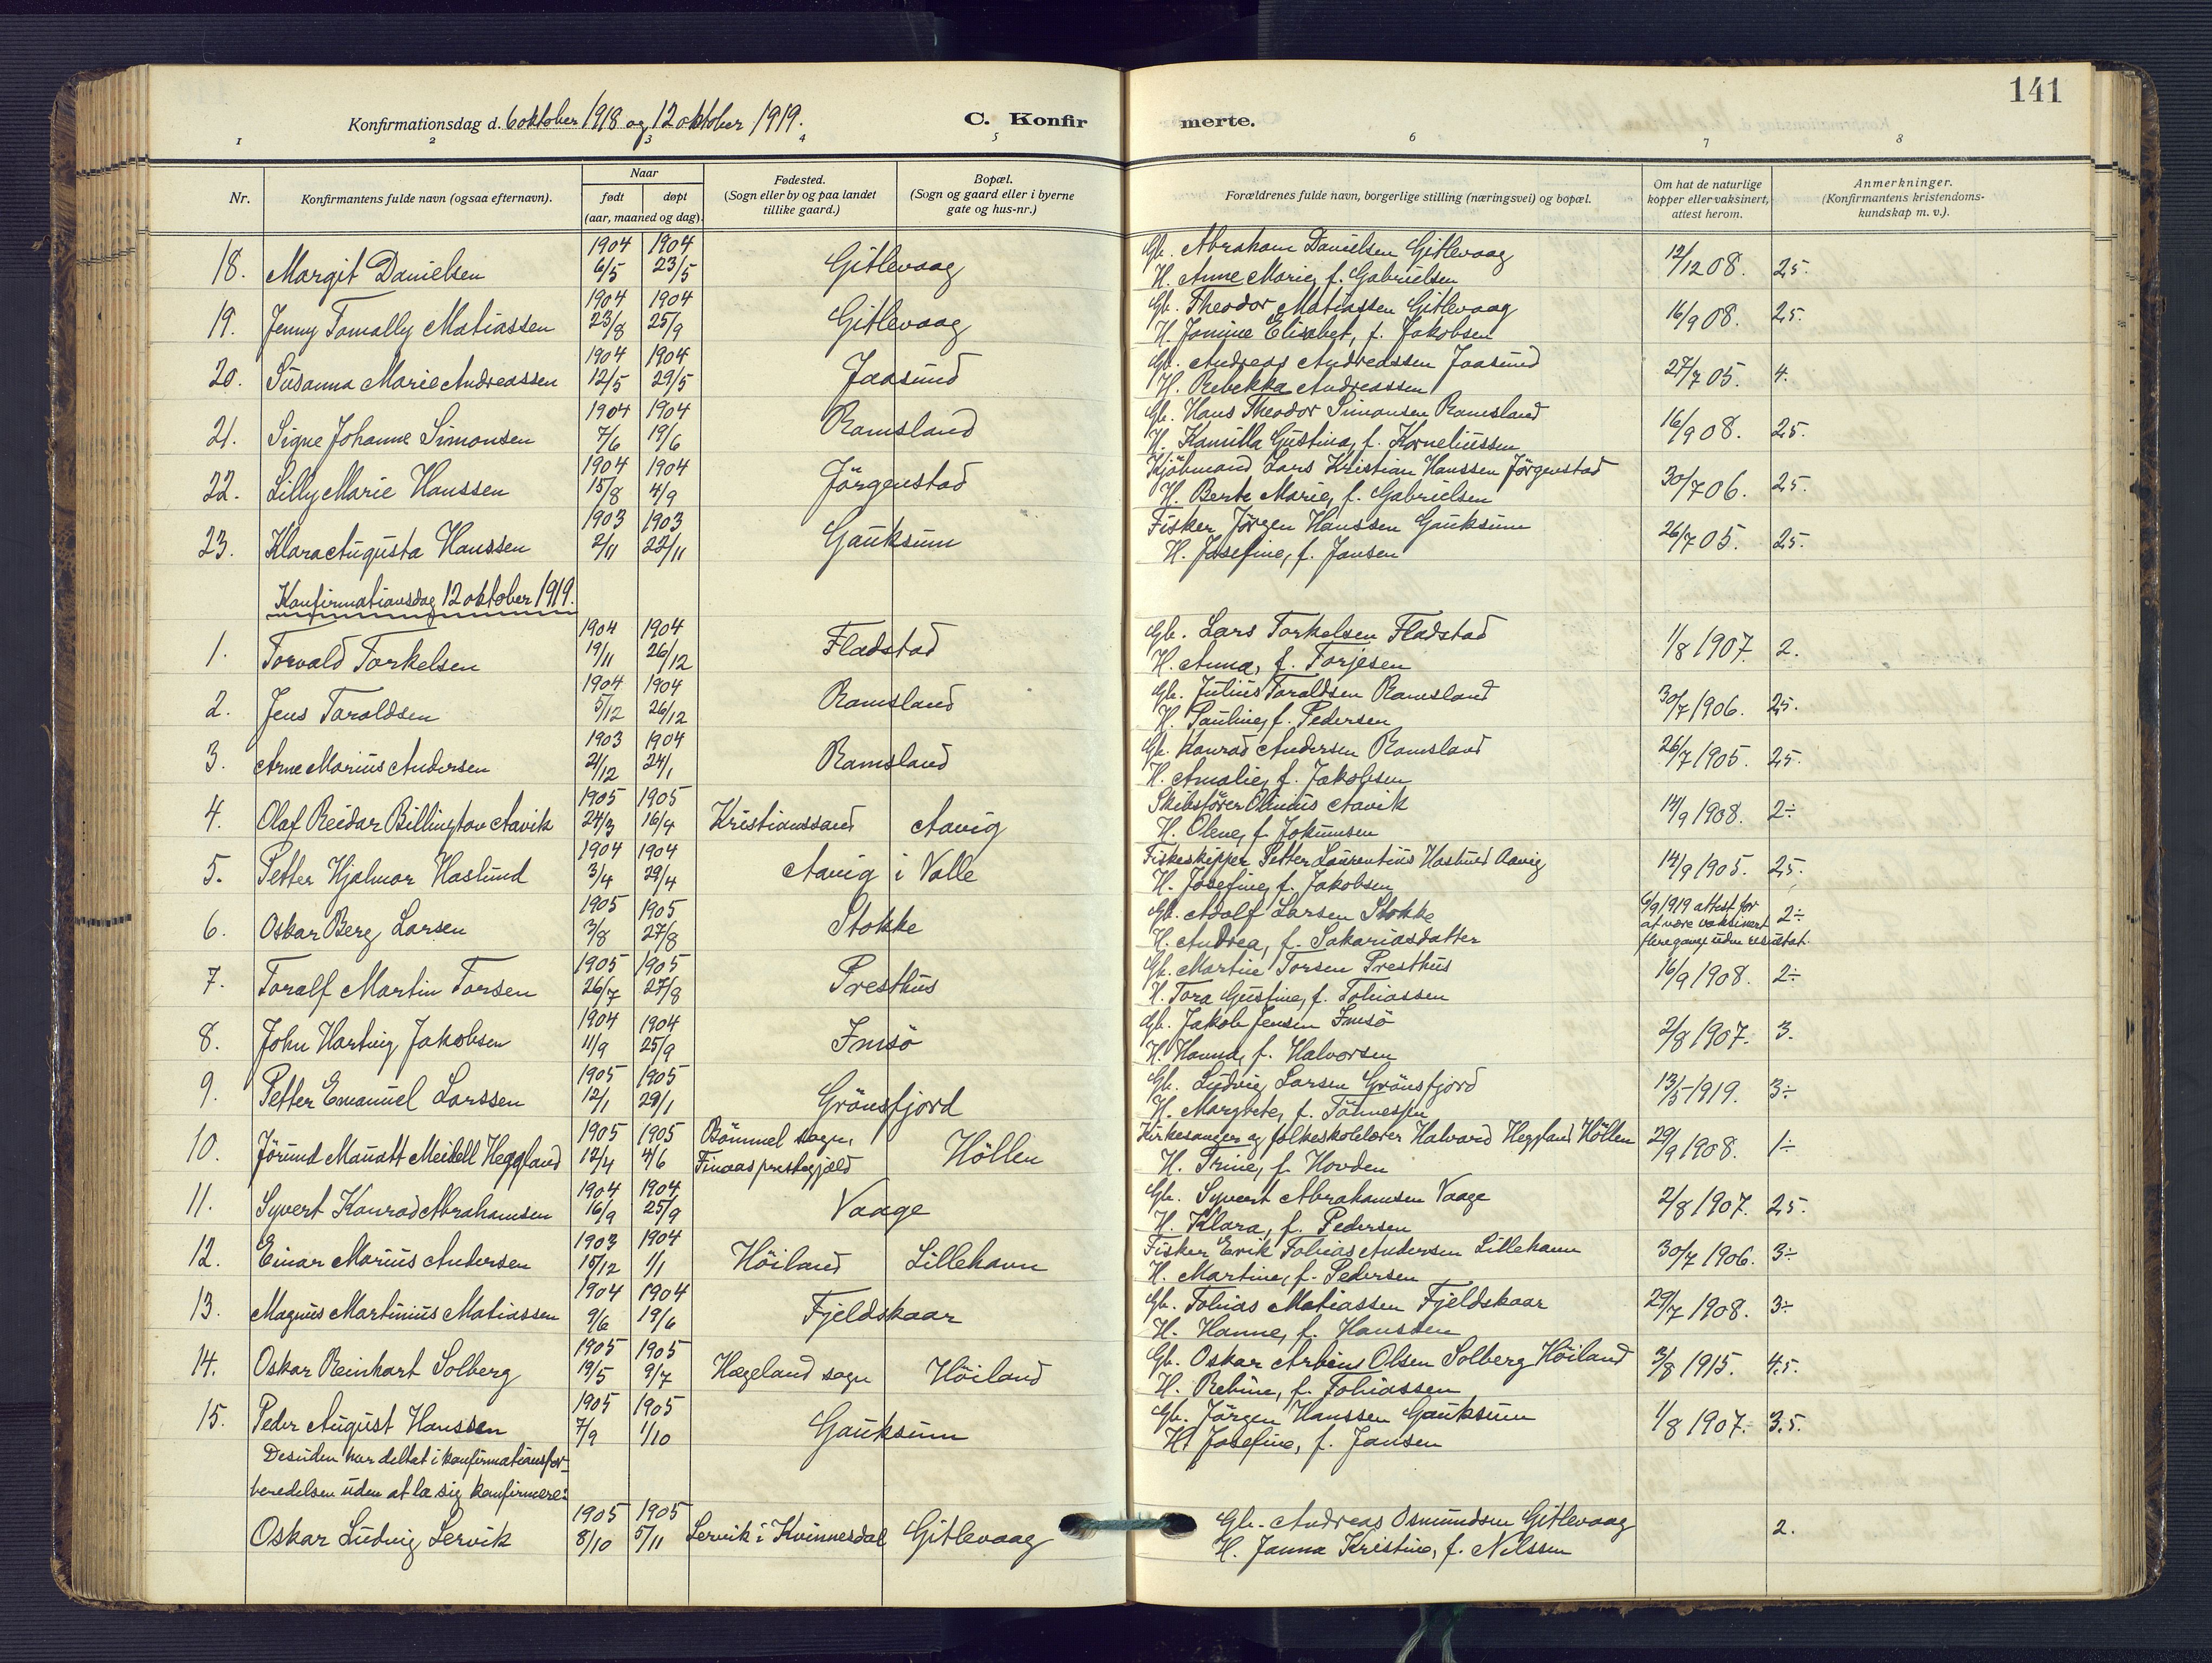 141
Konfirmationsdag d. 6 oktober 1918 og 12 oktober 1919.
C. Konfirmerte.
1 2 3 4 5 6 7 8
Nr.
Konfirmantens fulde navn (ogsaa efternavn).
Naar
født døpt
(aar, maaned og dag).
Fødested.
(Sogn eller by og paa landet
tillike gaard.)
Bopæl.
(Sogn og gaard eller i byerne
gate og hus-nr.)
Forældrenes fulde navn, borgerlige stilling (næringsvei) og bopæl.
Om hat de naturlige
kopper eller vaksinert,
attest herom.
Anmerkninger.
(Konfirmantens kristendoms-
kundskap m. v.).
1904 1904 Gb. Abraham Danielsen Gitlevaag
18. Margit Danielsen 6/5 23/5 Gitlevaag H. Anne Marie, f. Gabrielsen 12/12 08. 2,5.
1904 1904 Gb. Theodor Matiassen Gitlevaag
19. Jenny Tomally Matiassen 23/8 25/9 Gitlevaag H. Jomine Elisabet, f. Jakobsen 16/9 08. 2,5.
1904 1904 Gb. Andreas Andreassen Jaasund
20. Susanna Marie Andreassen 12/5 29/5 Jaasund H. Rebekka Andreassen 27/7 05. 4.
1904 1904 Gb. Hans Theodor Simonsen Ramsland
21. Signe Johanne Simonsen 7/6 19/6 Ramsland H. Kamilla Gustina, f. Korneliussen 16/9 08. 2,5.
1904 1904 Kjöbmand Lars Kristian Hanssen Jörgenstad
22. Lilly Marie Hanssen 15/8 4/9 Jörgenstad H. Berte Marie, f. Gabrielsen 30/7 06. 2,5.
1903 1903 Fisker Jörgen Hanssen Gauksum
23. Klara Augusta Hanssen 2/11 22/11 Gauksum H. Josefine, f. Jansen 26/7 05. 2,5.
Konfirmationsdag 12 oktober 1919.
1904 1904 Gb. Lars Torkelsen Fladstad
1. Torvald Torkelsen 19/11 26/12 Fladstad H. Anna, f. Torjesen 1/8 1907. 2.
1904 1904 Gb. Julius Taraldsen Ramsland
2. Jens Taraldsen 5/12 26/12 Ramsland H. Pauline, f. Pedersen 30/7 1906. 2,5.
1903 1904 Gb. Konrad Andersen Ramsland
3. Arne Marius Andersen 21/12 24/1 Ramsland H. Amalie, f. Jakobsen 26/7 1905. 2,5.
1905 1905 Skibsfører Olinius Aavik
4. Olaf Reidar Billington Aavik 24/3 16/4 Kristianssand Aavig H. Olene, f. Jokumsen 14/9 1908. 2÷
1904 1904 Fiskeskipper Petter Laurentius Haslund Aavig
5. Petter Hjalmar Haslund 3/4 29/4 Aavig i Valle H. Josefine, f. Jakobsen 14/9 1905. 2,5.
1905 1905 Gb. Adolf Larsen Stokke 6/9 1919 attest for
6. Oskar Berg Larsen 3/8 27/8 Stokke H. Andrea, f. Sakariasdatter at være vaksinert 2÷
flere gange uden resultat.
1905 1905 Gb. Martin Torsen Presthus
7. Toralf Martin Torsen 26/7 27/8 Presthus H. Tora Gustine, f. Tobiassen 16/9 1908. 2÷
1904 1904 Gb. Jakob Jensen Imsö
8. John Harting Jakobsen 11/9 25/9 Imsö H. Hanna, f. Halvorsen 2/8 1907. 3.
1905 1905 Gb. Ludvig Larsen Grönsfjord
9. Petter Emanuel Larssen 12/1 29/1 Grönsfjord H. Margrete, f. Tönnessen 13/5 1919. 3÷
1905 1905 Bömmel sogn, Kirkesanger og folkeskolelærer Halvard Heggland Höllen
10. Jørund Mauatt Meidell Heggland 12/4 4/6 Finaas prestegjæld Höllen H. Trine, f. Hovden 29/9 1908. 1÷
1904 1904 Gb. Syvert Abrahamsen Vaage
11. Syvert Konrad Abrahamsen 16/9 25/9 Vaage H. Klara, f. Pedersen 2/8 1907. 2,5.
1903 1904 Fisker Erik Tobias Andersen Lillehavn
12. Einar Marius Andersen 15/12 1/1 Höiland Lillehavn H. Martine, f. Pedersen 30/7 1906. 3÷
1904 1904 Gb. Tobias Matiassen Fjeldskaar
13. Magnus Martinius Matiassen 9/6 19/6 Fjeldskaar H. Hanne, f. Hanssen 29/7 1908. 3÷
1905 1905 Gb. Oskar Arbinus Olsen Solberg Höiland
14. Oskar Reinhart Solberg 19/5 9/7 Hægeland sogn Höiland H. Rebine, f. Tobiassen 3/8 1915. 4,5.
1905 1905 Gb. Jörgen Hanssen Gauksum
15. Peder August Hanssen 7/9 1/10 Gauksum H. Josefine, f. Jansen 1/8 1907. 3,5.
Desuden har deltat i konfirmationsfor-
beredelsen uden at la sig konfirmere:
1905 1905 Gb. Andreas Osmundsen Gitlevaag
Oskar Ludvig Lervik 8/10 5/11 Lervik i Kvinnesdal Gitlevaag H. Janna Kristine, f. Nilssen 2.